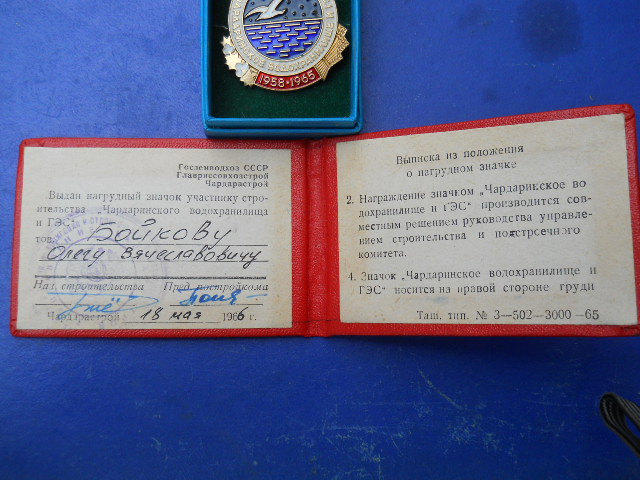 ЧАРДАРИНСКОЕ ВОДОХРАНИЛИЩЕ
1958•1965
Госземводхоз СССР
Главриссовхозстрой
Чардарастрой
Выдан нагрудный значок участнику стро-
ительства „Чардаринского водохранилища
и ГЭС"
тов. Бойкову
Олегу Вячеславовичу
Нач. строительства Пред. постройкома
Чардарастрой 18 мая 1966 г.
Выписка из положения
о нагрудном значке
2. Награждение значком „Чардаринское во
дохранилище и ГЭС" производится сов-
местным решением руководства управле-
нием строительства и построечного
комитета.
4. Значок „Чардаринское водохранилище и
ГЭС" носится на правой стороне груди
Таш. тип. № 3—502—3000—65